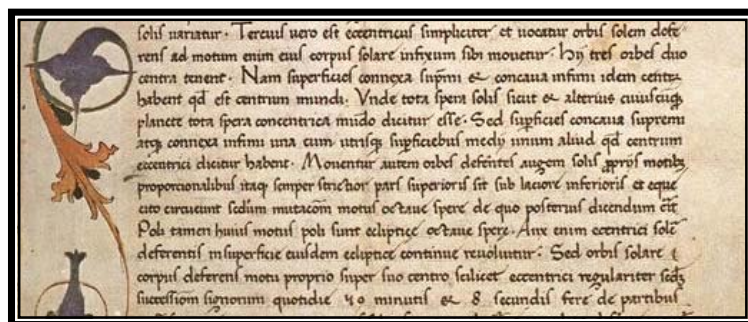 solis uariatur. Tercius uero est eccentricus simpliciter et uocatur orbis solem defe
rens ad motum enim eius corpus solare infixum sibi mouetur. Hij tres orbes duo
centra tenent. Nam superficies connexa supmi et concaua infimi idem
habent qd est centrum mundi. Vnde tota spera solis sicut et alterius
planete tota spera concentrica mudo dicitur esse. Sed supficies concaua supremi
atq connexa infimi una cum utrisq supficiebus medij unum aliud qd centrum
eccentrici dicitur habent. Mouentur autem orbes defentes augem solis motibz
proporcionalibus itaq semper strictior pars superioris sit sub laciore inferioris et eque
cito circueunt mutacom motus octaue spere de quo posterius dicendum
Poli tamen huius motus poli sunt ecliptice octaue spere. Aux enim eccentrici sole
deferentis in superficie eiusdem ecliptice continue reuoluitur. Sed orbis solare
corpus deferens motu proprio super suo centro scilicet eccentrici regulariter
successiom signorum quotidie 59 minutis et 8 secundis fere de partibus